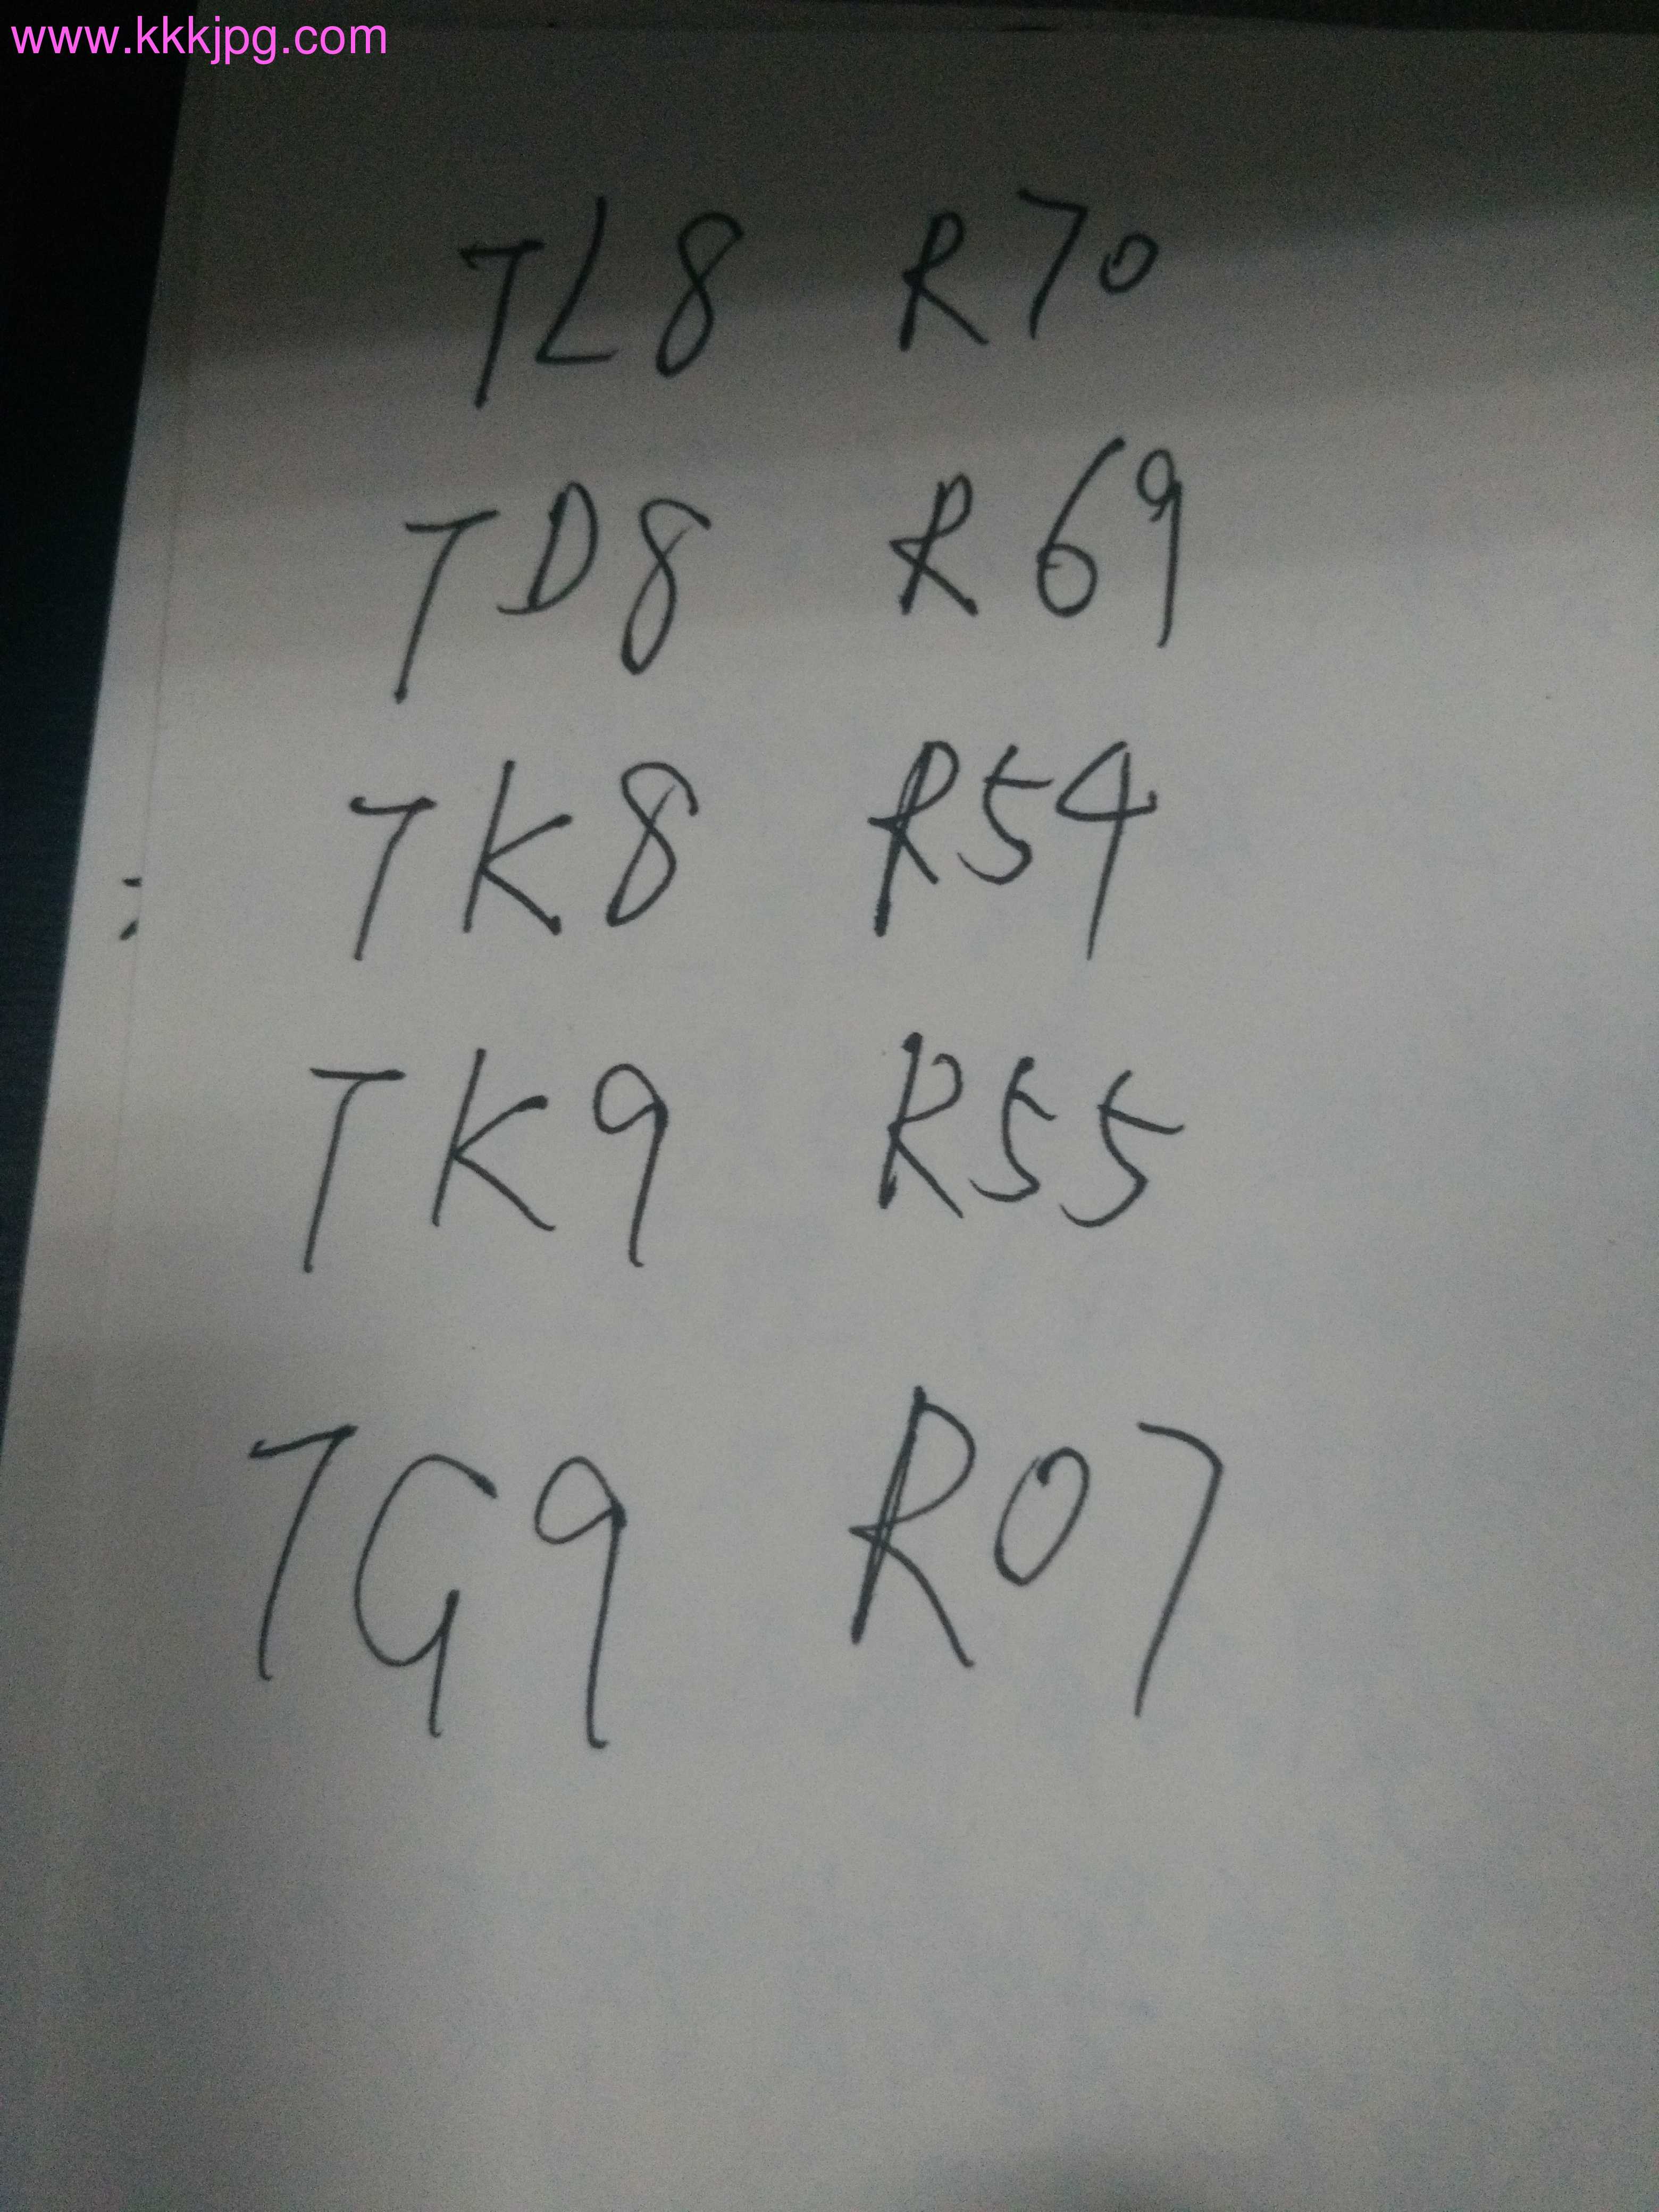 www.kkkjpg.com
TL8 R70
TD8 R69
TK8 R54
TK9 R55
TG9 R07